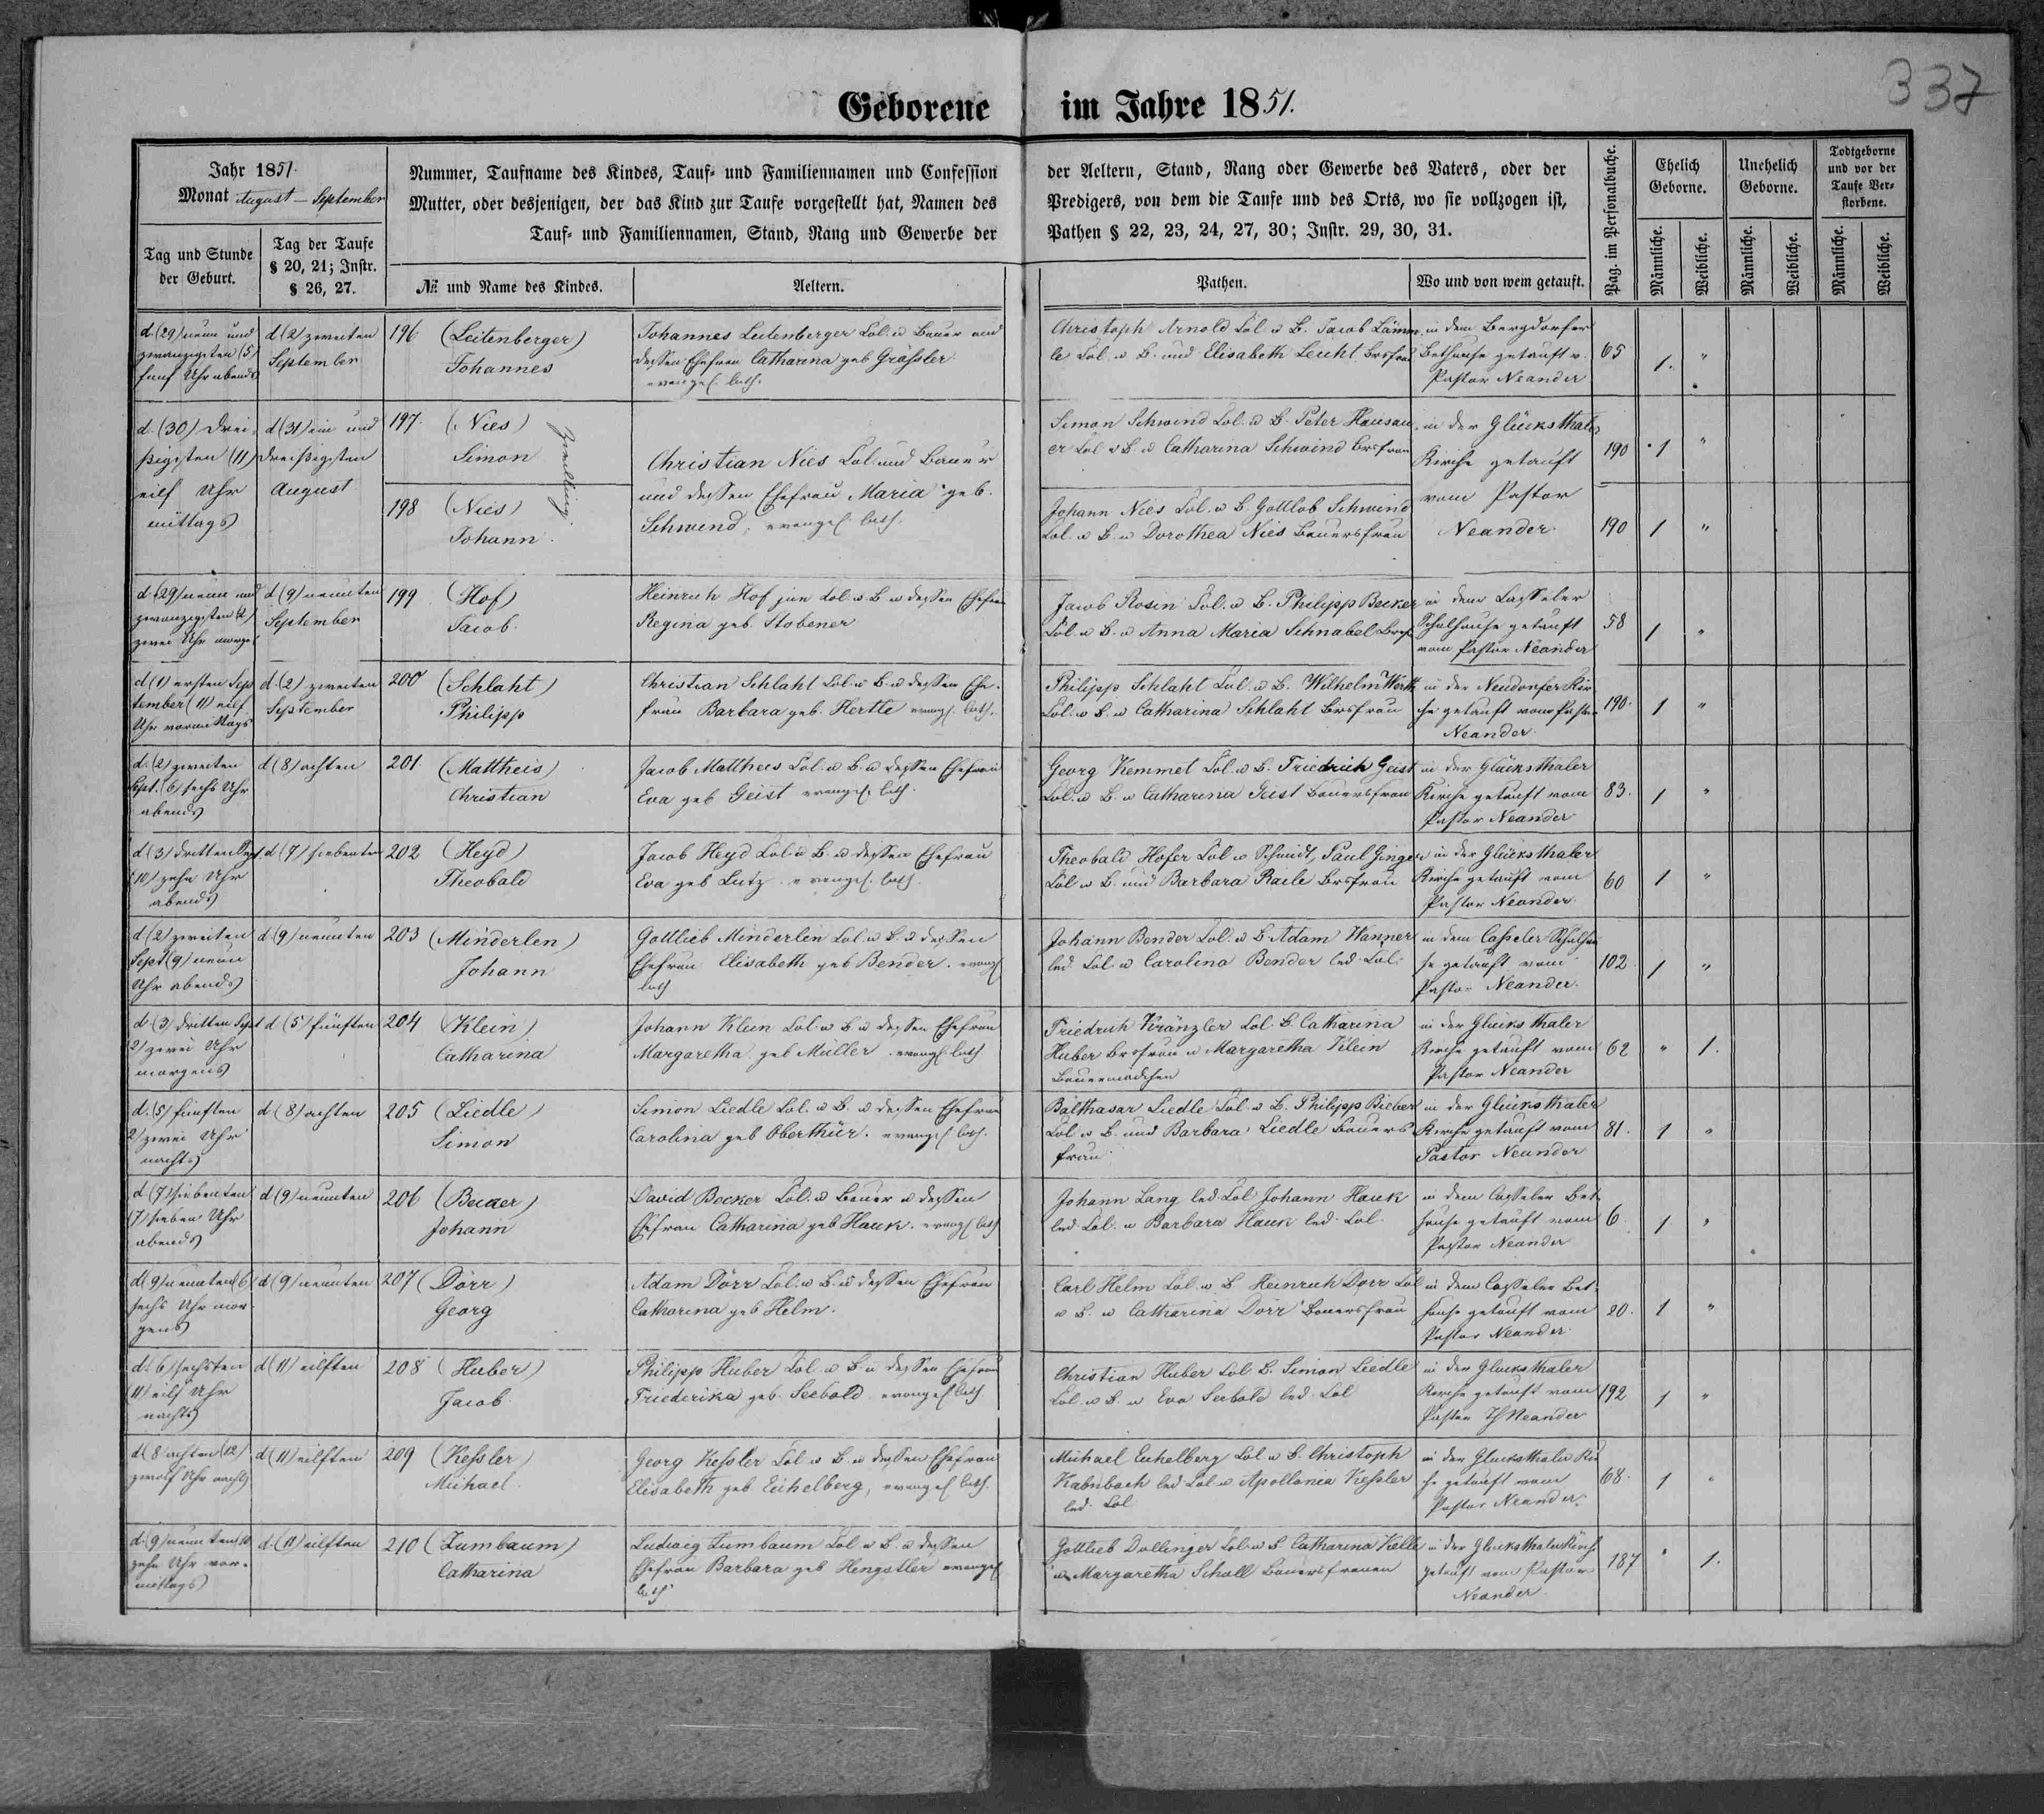 337
Geborene im Jahre 1851.
Jahr 1851.
Monat August – September
Nummer, Taufname des Kindes, Tauf= und Familiennamen und Confession der Aeltern, Stand, Rang oder Gewerbe des Vaters, oder der
Mutter, oder desjenigen, der das Kind zur Taufe vorgestellt hat, Namen des Predigers, von dem die Taufe und des Orts, wo sie vollzogen ist,
Tauf= und Familiennamen, Stand, Rang und Gewerbe der Pathen § 22, 23, 24, 27, 30; Instr. 29, 30, 31.
Tag und Stunde
der Geburt.
Tag der Taufe
§ 20, 21; Instr.
§ 26, 27.
№ und Name des Kindes.
Aeltern.
Pathen.
Wo und von wem getauft.
Pag. im Personalbuche.
Ehelich
Geborne.
Unehelich
Geborne.
Todtgeborne
und vor der
Taufe Ver=
storbene.
Männliche.
Weibliche.
Männliche.
Weibliche.
Männliche.
Weibliche.
d. (29) neun und
zwanzigsten (5)
fünf Uhr abends
d (2) zweiten
September
196 (Leitenberger)
Johannes
Johannes Leitenberger Col. u Bauer und
dessen Ehefrau Catharina geb Grässler
evangel. luth.
Christoph Arnold Col. u B. Jacob Lämm
le Col. u B. und Elisabeth Leicht Brsfrau
in dem Bergdorfer
Bethause getauft v.
Pastor Neander
65
1. "
d. (30) Drei
ßigsten (11)
eilf Uhr
mittags
d (31) ein und
dreißigsten
August
197. (Nies)
Simon
Zwillinge
198 (Nies)
Johann
Christian Nies Col. und Bauer
und dessen Ehefrau Maria geb.
Schwind, evangel. luth.
Simon Schwind Col. u B. Peter Hausau
er Col u B. u Catharina Schwind Brsfrau
Johann Nies Col. u B. Gottlob Schwind
Col. u B. u Dorothea Nies Bauersfrau
in der Glücksthaler
Kirche getauft
vom Pastor
Neander
190 1 "
190 1 "
d (29) neun und
zwanzigsten (2)
zwei Uhr morgs
d (9) neunten
September
199 (Hof)
Jacob.
Heinrich Hof jun Col. u B u dessen Ehefrau
Regina geb. Stobener
Jacob Rosin Col. u B. Philipp Becker
Col. u B. u Anna Maria Schnabel Brsf
in dem Casseler
Schulhause getauft
vom Pastor Neander
58 1 "
d (1) ersten Sep
tember (11) eilf
Uhr vormittags
d. (2) zweiten
September
200 (Schlaht)
Philipp
Christian Schlaht Col. u B. u dessen Ehe
frau Barbara geb. Hertle evangl. luth.
Philipp Schlaht Col. u B. Wilhelm Werth
Col. u B. u Catharina Schlaht Brsfrau
in der Neudorfer Kir
che getauft vom Pastor
Neander
190. 1 "
d. (2) zweiten
Sept. (6) sechs Uhr
abends
d (8) achten
201. (Mattheis)
Christian
Jacob Mattheis Col. u B. u dessen Ehefrau
Eva geb Geist evangel. luth.
Georg Kemmet Col. u B. Friedrich Geist
Col. u B. u Catharina Geist Bauersfrau
in der Glücksthaler
Kirche getauft vom
Pastor Neander
83. 1 "
d (3) dritten Sept
(10) zehn Uhr
abends
d (7) siebenten
202 (Heyd)
Theobald
Jacob Heyd Col. u B. u dessen Ehefrau
Eva geb Lutz. evangel. luth.
Theobald Hofer Col u Schmidt, Paul Ginger
Col u B. und Barbara Raile Brsfrau
in der Glücksthaler
Kirche getauft vom
Pastor Neander.
60 1 "
d (2) zweiten
Sept (9) neun
Uhr abends
d. (9) neunten
203 (Minderlen)
Johann
Gottlieb Minderlin Col. u B. u dessen
Ehefrau Elisabeth geb Bender. evangl
luth
Johann Bender Col. u B. Adam Wanner
led Col. u Carolina Bender led Col.
in dem Casseler Schulhau
se getauft vom
Pastor Neander.
102 1 "
d (3) dritten Sept
2) zwei Uhr
morgens
d (5) fünften
204 (Klein)
Catharina
Johann Klein Col. u B. u dessen Ehefrau
Margaretha geb Müller. evangl. luth
Friedrich Kränzler Col. B. Catharina
Huber Brsfrau u Margaretha Klein
Bauermädchen
in der Glücksthaler
Kirche getauft vom
Pastor Neander
62 " 1.
d. (5) fünften
2) zwei Uhr
nachts
d (8) achten
205 (Liedle)
Simon
Simon Liedle Col. u B. u dessen Ehefrau
Carolina geb Oberthür. evangel luth.
Balthasar Liedle Col. u B. Philipp Bieber
Col. u B. und Barbara Liedle Bauers
frau
in der Glücksthaler
Kirche getauft vom
Pastor Neander
81. 1 "
d (7) siebenten
(7) sieben Uhr
abends
d (9) neunten
206 (Becker)
Johann
David Becker Col. u Bauer u dessen
Ehefrau Catharina geb Hauk. evangl luth
Johann Lang led Col Johann Hauk
led Col. u Barbara Hauk led Col.
in dem Casseler Bet
hause getauft vom
Pastor Neander
6 1 "
d (9) neunten (6
sechs Uhr mor
gens
d (9) neunten
207 (Dörr)
Georg
Adam Dörr Col. u B. u dessen Ehefrau
Catharina geb Helm.
Carl Helm Col u B Heinrich Dörr Col
u B. u Catharina Dörr Bauersfrau
in dem Casseler Bet
hause getauft vom
Pastor Neander
20. 1 "
d. 6) sechsten
11) eilf Uhr
nachts
d (11) eilften
208 (Huber)
Jacob
Philipp Huber Col. u B. u dessen Ehefrau
Friederika geb. Seebold evangel luth
Christian Huber Col. B. Simon Liedle
Col. u B. u Eva Seebold led Col
in der Glücksthaler
Kirche getauft vom
Pastor Neander
192 1 "
d (8 achten (12)
zwölf Uhr nachts
d (11) eilften
209 (Kessler)
Michael
Georg Kessler Col. u B. u dessen Ehefrau
Elisabeth geb. Eichelberg, evangel luth.
Michael Eichelberg Col. u B. Christoph
led Col u Apollonia Kessler
led. Col.
in der Glücksthaler Kir
che getauft vom
Pastor Neander.
68. 1 "
d (9) neunten 10
zehn Uhr vor
mittags
d. (11) eilften
210 (Zumbaum)
Catharina
Ludwig Zumbaum Col. u B. u dessen
Ehefrau Barbara geb Hengstler evangel
luth
Gottlieb Dollinger Col u B Catharina Kelle
u Margaretha Scholl Bauersfrauen
in der Glücksthaler Kirche
getauft vom Pastor
Neander.
187 " 1.